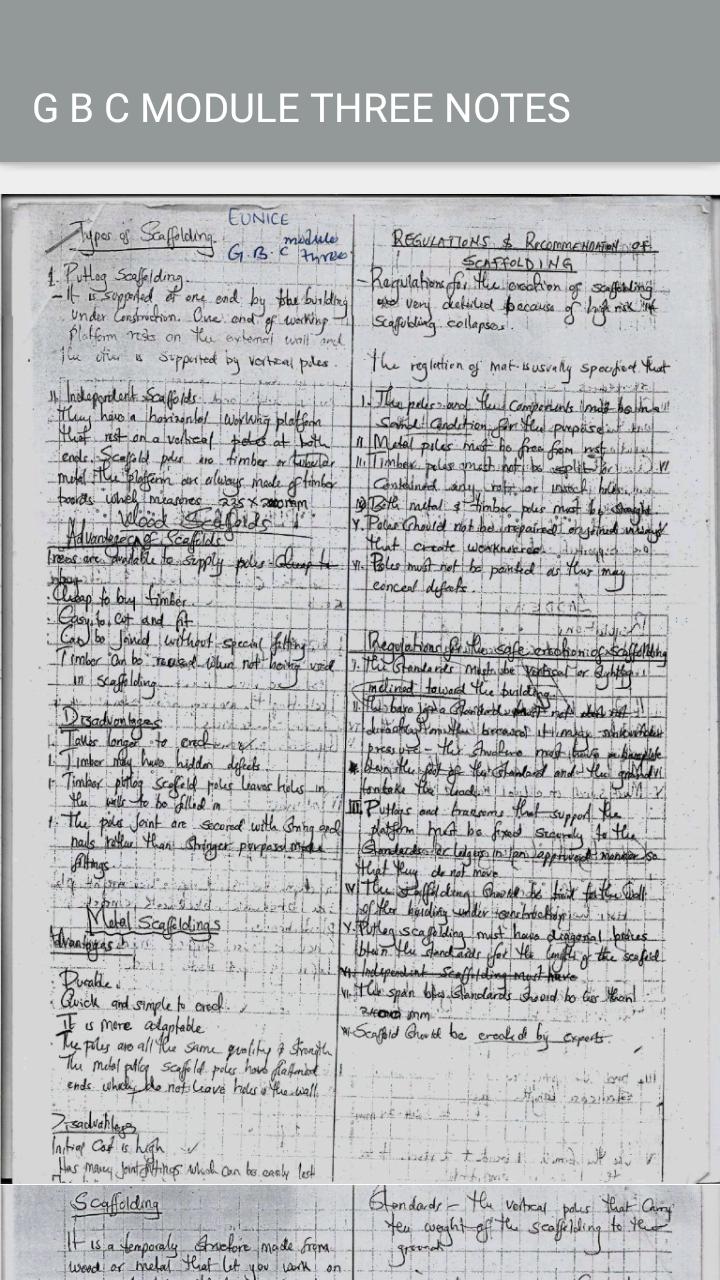 G B C MODULE THREE NOTES
EUNICE
G.B.C module three
Types of Scaffolding.
1. Putlog Scaffolding.
- It is supported at one end by the building
under Construction. One end of working
platform rests on the external wall and
the other is supported by vertical poles.
II. Independent Scaffolds
They have a horizontal working platform
that rest on a vertical poles at both
ends. Scaffold poles are timber or tubular
metal. The platform are always made of timber
boards which measures 225 X mm
Wood Scaffolds
Advantages of Scaffolds
Trees are available to supply poles. Cheap to
buy
Cheap to buy timber.
Easy to cut and fit
Can be joined without special fitting
Timber can be reused when not being used
in scaffolding
Disadvantages
Takes longer to erect
Timber may have hidden defects
Timber putlog scaffold poles leaves holes in
the walls to be filled in
The poles joint are secured with string and
nails rather than stronger purpose made
fittings.
Metal Scaffoldings
Advantages
Durable.
Quick and simple to erect.
It is more adaptable
The poles are all the same quality & strength
The metal putlog scaffold poles have flattened
ends which do not leave holes the wall
Disadvantages
Initial Cost is high
Has many joint fittings which can be easily lost
REGULATIONS & RECOMMENDATION OF
SCAFFOLDING
- Regulations for the erection of scaffolding
are very detailed because of high risk if
scaffolding collapses.
The reglation of mat. is usually specified that
I. The poles and the components must be in a
sound condition for the purpose
II. Metal poles must be free from rust
III. Timber poles must not be split or
contained any rots or insect holes.
IV. Both metal & timber poles must be straight.
V. Poles should not be repaired or joined in ways
that create weaknesses.
VI. Poles must not be painted as this may
conceal defects.
Regulations for the safe erection of scaffolding
I. The standards must be vertical or slightly
inclined toward the building
II. The base of a standard must not
directly because it may sink
pressure - the must
btwn the foot of the standard and the ground
to take the load.
III. Putlogs and transoms that support the
platform must be fixed securely to the
Standards or ledgers in an approved manner so
that they do not move
IV. The scaffolding should be tied to the wall
of the building under construction
V. Putlog scaffolding must have diagonal braces
btwn the standards for the length of the scaffold
VI. Independent Scaffolding must have
VI. The span btwn standards should be less than
mm
Scaffold should be erected by experts.
Scaffolding
It is a temporaly structure made from
wood or metal that let you work on
Standards - the vertical poles that carry
the weight of the scaffolding to the
ground